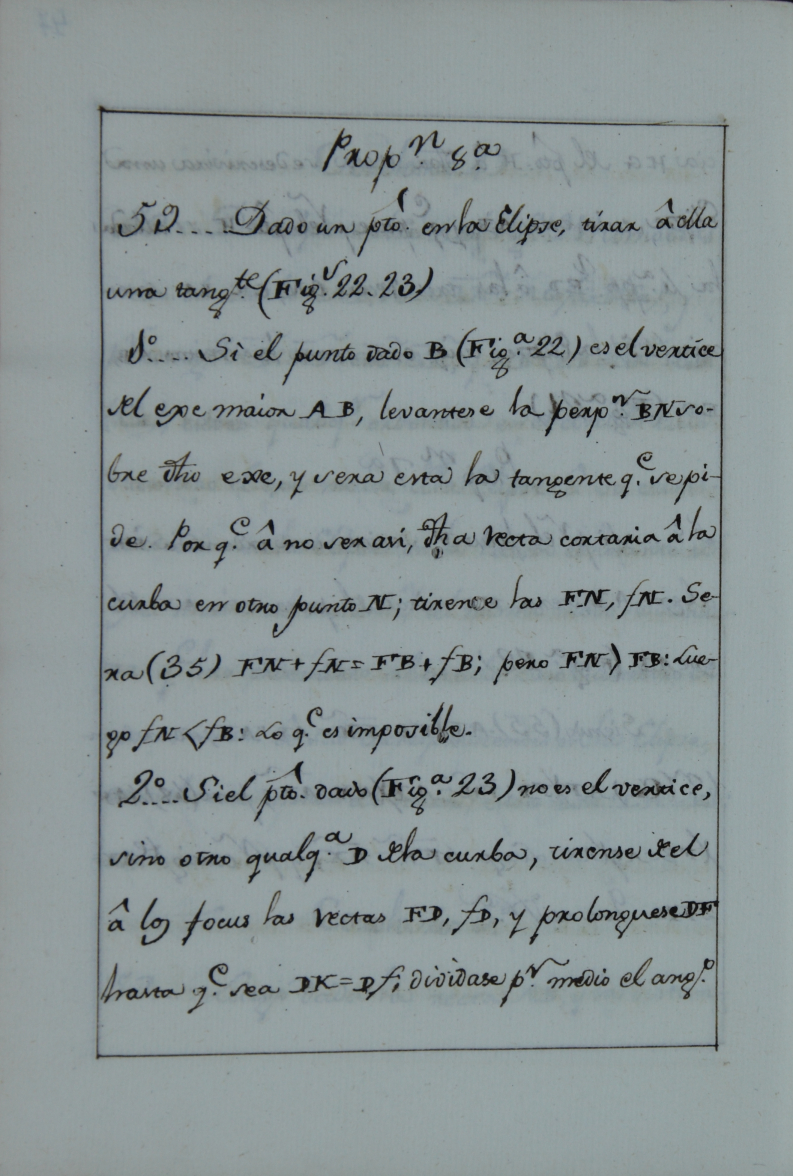 Propn. 8a
52.... Dado un pto. en la Elipse, tirar â élla
una tangte (Figs. 22. 23)
1o.... Si el punto dado B (Figa. 22) es el vertice
del exe maior AB, levantese la perpr. BN so-
bre dho exe, y será esta la tangente qe. se pi-
de. Por qe. â no ser asi, dha recta cortaria â la
curba en otro punto N; tirense las FN, fN. Se-
ra (35) FN + fN = FB + fB; pero FN > FB: Lue-
go fN < fB: Lo qe. es imposible.
2o.... Si el pto. dado (Figa. 23) no es el vertice,
sino otro qualqa. D dela curba, tirense del
â los focus las rectas FD, fD, y prolonguese DF
hasta qe. sea DK = Df; dividase pr. medio el ango.